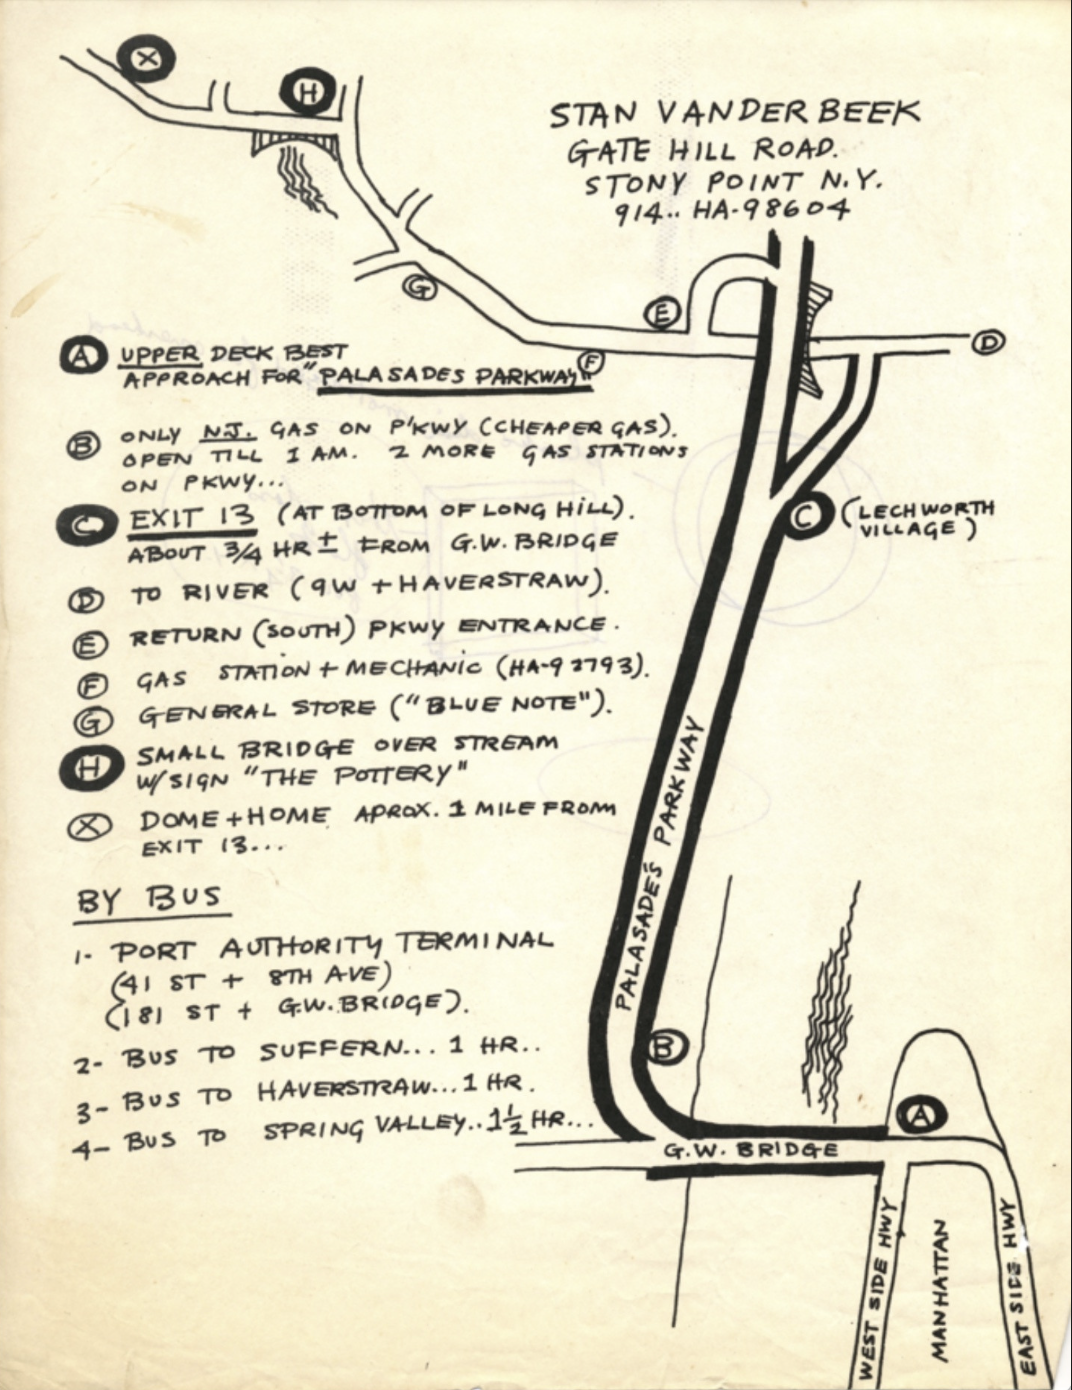 STAN VANDERBEEK
GATE HILL ROAD.
STONY POINT N.Y.
914.. HA-98604
X
H
G
E
F
D
A UPPER DECK BEST
APPROACH FOR "PALASADES PARKWAY"
B ONLY N.J. GAS ON P'KWY (CHEAPER GAS).
OPEN TILL 1 AM. 2 MORE GAS STATIONS
ON PKWY...
C EXIT 13 (AT BOTTOM OF LONG HILL).
ABOUT 3/4 HR ± FROM G.W. BRIDGE
D TO RIVER (9W + HAVERSTRAW).
E RETURN (SOUTH) PKWY ENTRANCE.
F GAS STATION + MECHANIC (HA-9 2793).
G GENERAL STORE ("BLUE NOTE").
H SMALL BRIDGE OVER STREAM
W/SIGN "THE POTTERY"
X DOME + HOME APROX. 1 MILE FROM
EXIT 13...
C (LECHWORTH
VILLAGE)
PALASADES PARKWAY
BY BUS
1- PORT AUTHORITY TERMINAL
(41 ST + 8TH AVE)
(181 ST + G.W. BRIDGE).
2- BUS TO SUFFERN... 1 HR..
3- BUS TO HAVERSTRAW... 1 HR.
4- BUS TO SPRING VALLEY.. 1½ HR...
B
A
G.W. BRIDGE
WEST SIDE HWY
MANHATTAN
EAST SIDE HWY